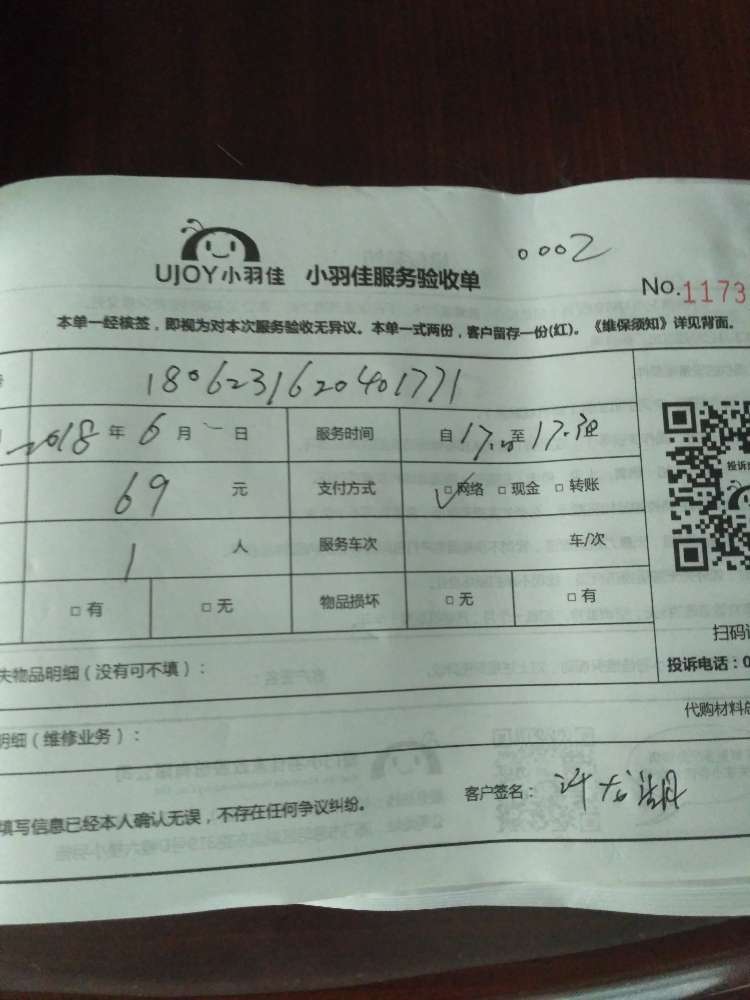 0002
UJOY小羽佳 小羽佳服务验收单
No.1173
本单一经核签，即视为对本次服务验收无异议。本单一式两份，客户留存一份(红)。《维保须知》详见背面。
1806231620401771
2018年6月 日 服务时间 自17. 至17.30
69 元 支付方式 □网络 □现金 □转账
1 人 服务车次 车/次
□有 □无 物品损坏 □无 □有
投诉
扫码
失物品明细（没有可不填）：
投诉电话：0
明细（维修业务）：
代购材料
填写信息已经本人确认无误，不存在任何争议纠纷。
客户签名：许